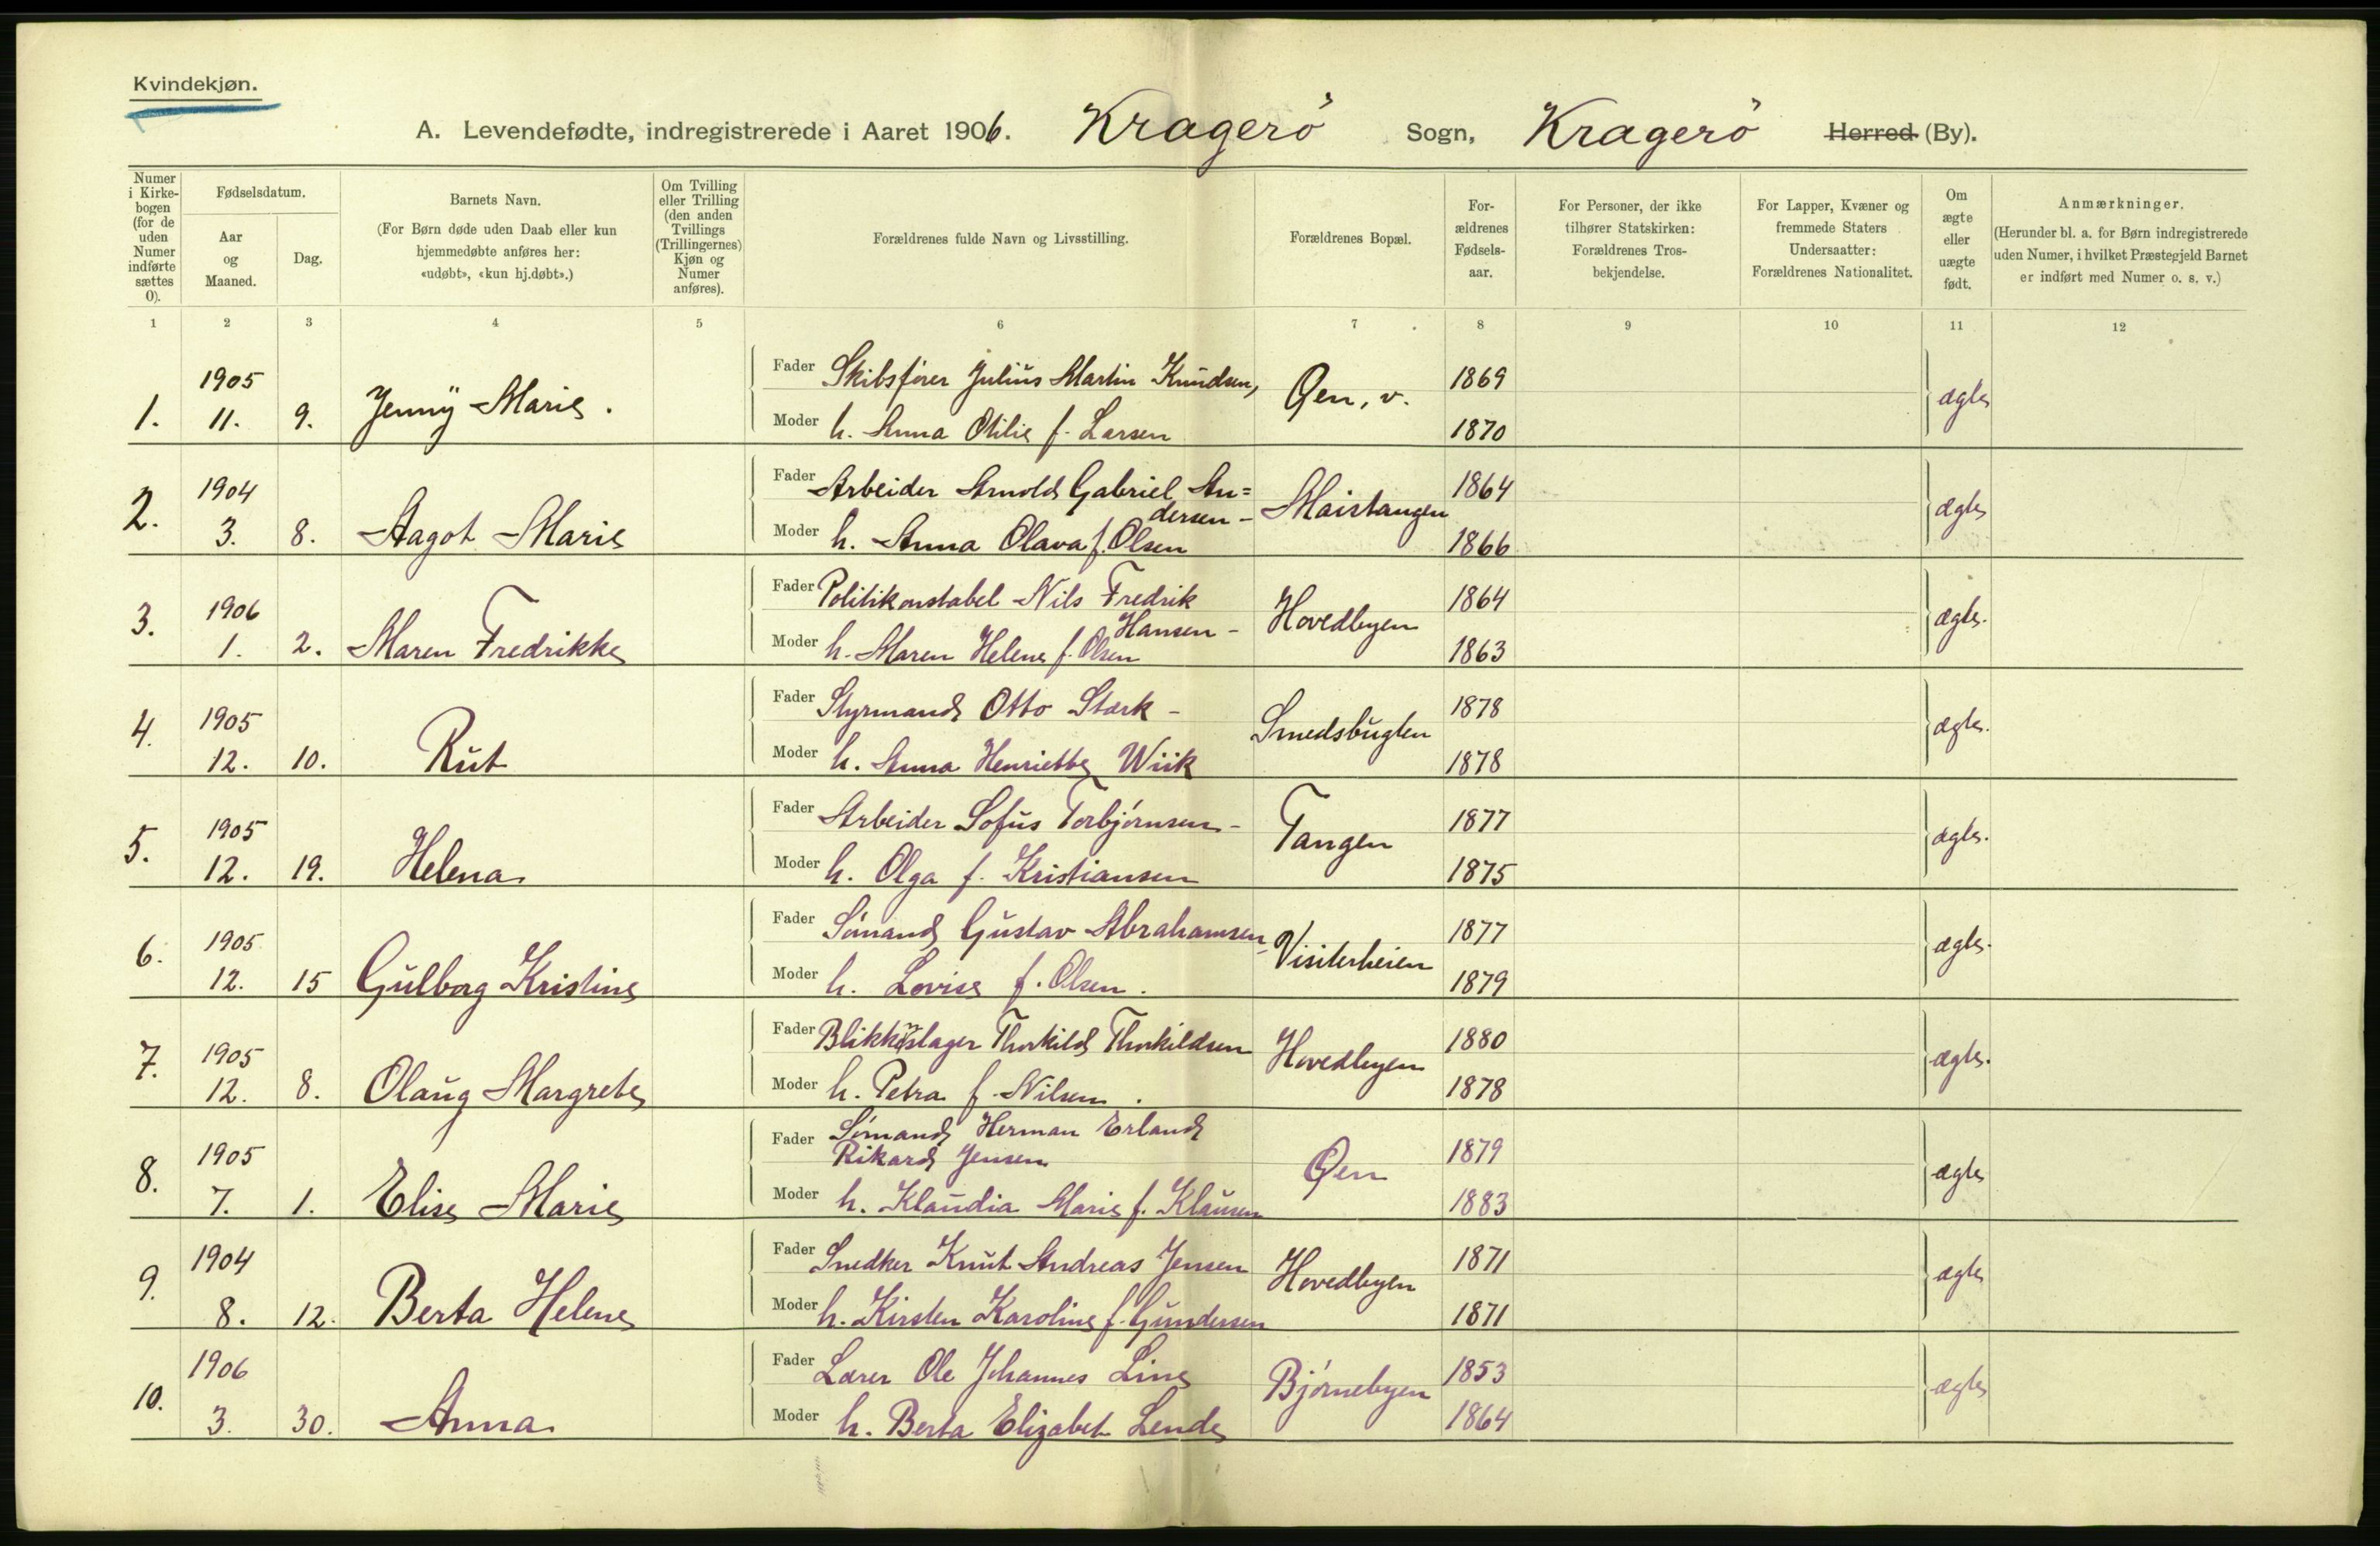 Kvindekjøn.
A. Levendefødte, indregistrerede i Aaret 1906. Kragerö Sogn, Kragerö Herred (By).
Numer i Kirkebogen (for de uden Numer indførte sættes 0).
Fødselsdatum.
Aar og Maaned.
Dag.
Barnets Navn.
(For Børn døde uden Daab eller kun hjemmedøbte anføres her: «udøbt», «kun hj.døbt».)
Om Tvilling eller Trilling (den anden Tvillings (Trillingernes) Kjøn og Numer anføres).
Forældrenes fulde Navn og Livsstilling.
Forældrenes Bopæl.
Forældrenes Fødselsaar.
For Personer, der ikke tilhører Statskirken: Forældrenes Trosbekjendelse.
For Lapper, Kvæner og fremmede Staters Undersaatter: Forældrenes Nationalitet.
Om ægte eller uægte født.
Anmærkninger.
(Herunder bl. a. for Børn indregistrerede uden Numer, i hvilket Præstegjeld Barnet er indført med Numer o. s. v.)
1 2 3 4 5 6 7 8 9 10 11 12
1. 1905 11. 9. Jenny Marie.
Fader Skibsfører Julius Martin Knudsen, Øen, v. 1869 ægte
Moder h. Anna Otilie f. Larsen 1870
2. 1904 3. 8. Aagot Marie
Fader Arbeider Arnold Gabriel An=
dersen - Maistangen 1864 ægte
Moder h. Anna Olava f. Olsen 1866
3. 1906 1. 2. Maren Fredrikke
Fader Politikonstabel Nils Fredrik
Hansen - Hovedbyen 1864 ægte.
Moder h. Maren Helene f. Olsen 1863
4. 1905 12. 10. Rut
Fader Styrmand Otto Stærk - Smedsbugten 1878 ægte.
Moder h. Anna Henriette Wiik 1878
5. 1905 12. 19. Helena
Fader Arbeider Sofus Torbjørnsen - Tangen 1877 ægte.
Moder h. Olga f. Kristiansen 1875
6. 1905 12. 15 Gulborg Kristine
Fader Sømand Gustav Abrahamsen - Visiterheien 1877 ægte.
Moder h. Lovise f. Olsen. 1879
7. 1905 12. 8. Olaug Margrete
Fader Blikkenslager Thorkild Thorkildsen Hovedbyen 1880 ægte.
Moder h. Petra f. Nilsen. 1878
8. 1905 7. 1. Elise Marie
Fader Sømand Herman Erland
Rikard Jensen Øen 1879 ægte
Moder h. Klaudia Marie f. Klausen 1883
9. 1904 8. 12. Berta Helene
Fader Snedker Knut Andreas Jensen Hovedbyen 1871 ægte
Moder h. Kirsten Karoline f. Gundersen 1871
10. 1906 3. 30. Anna
Fader Lærer Ole Johannes Line Bjørnebyen 1853 ægte
Moder h. Berta Elizabet Lende 1864